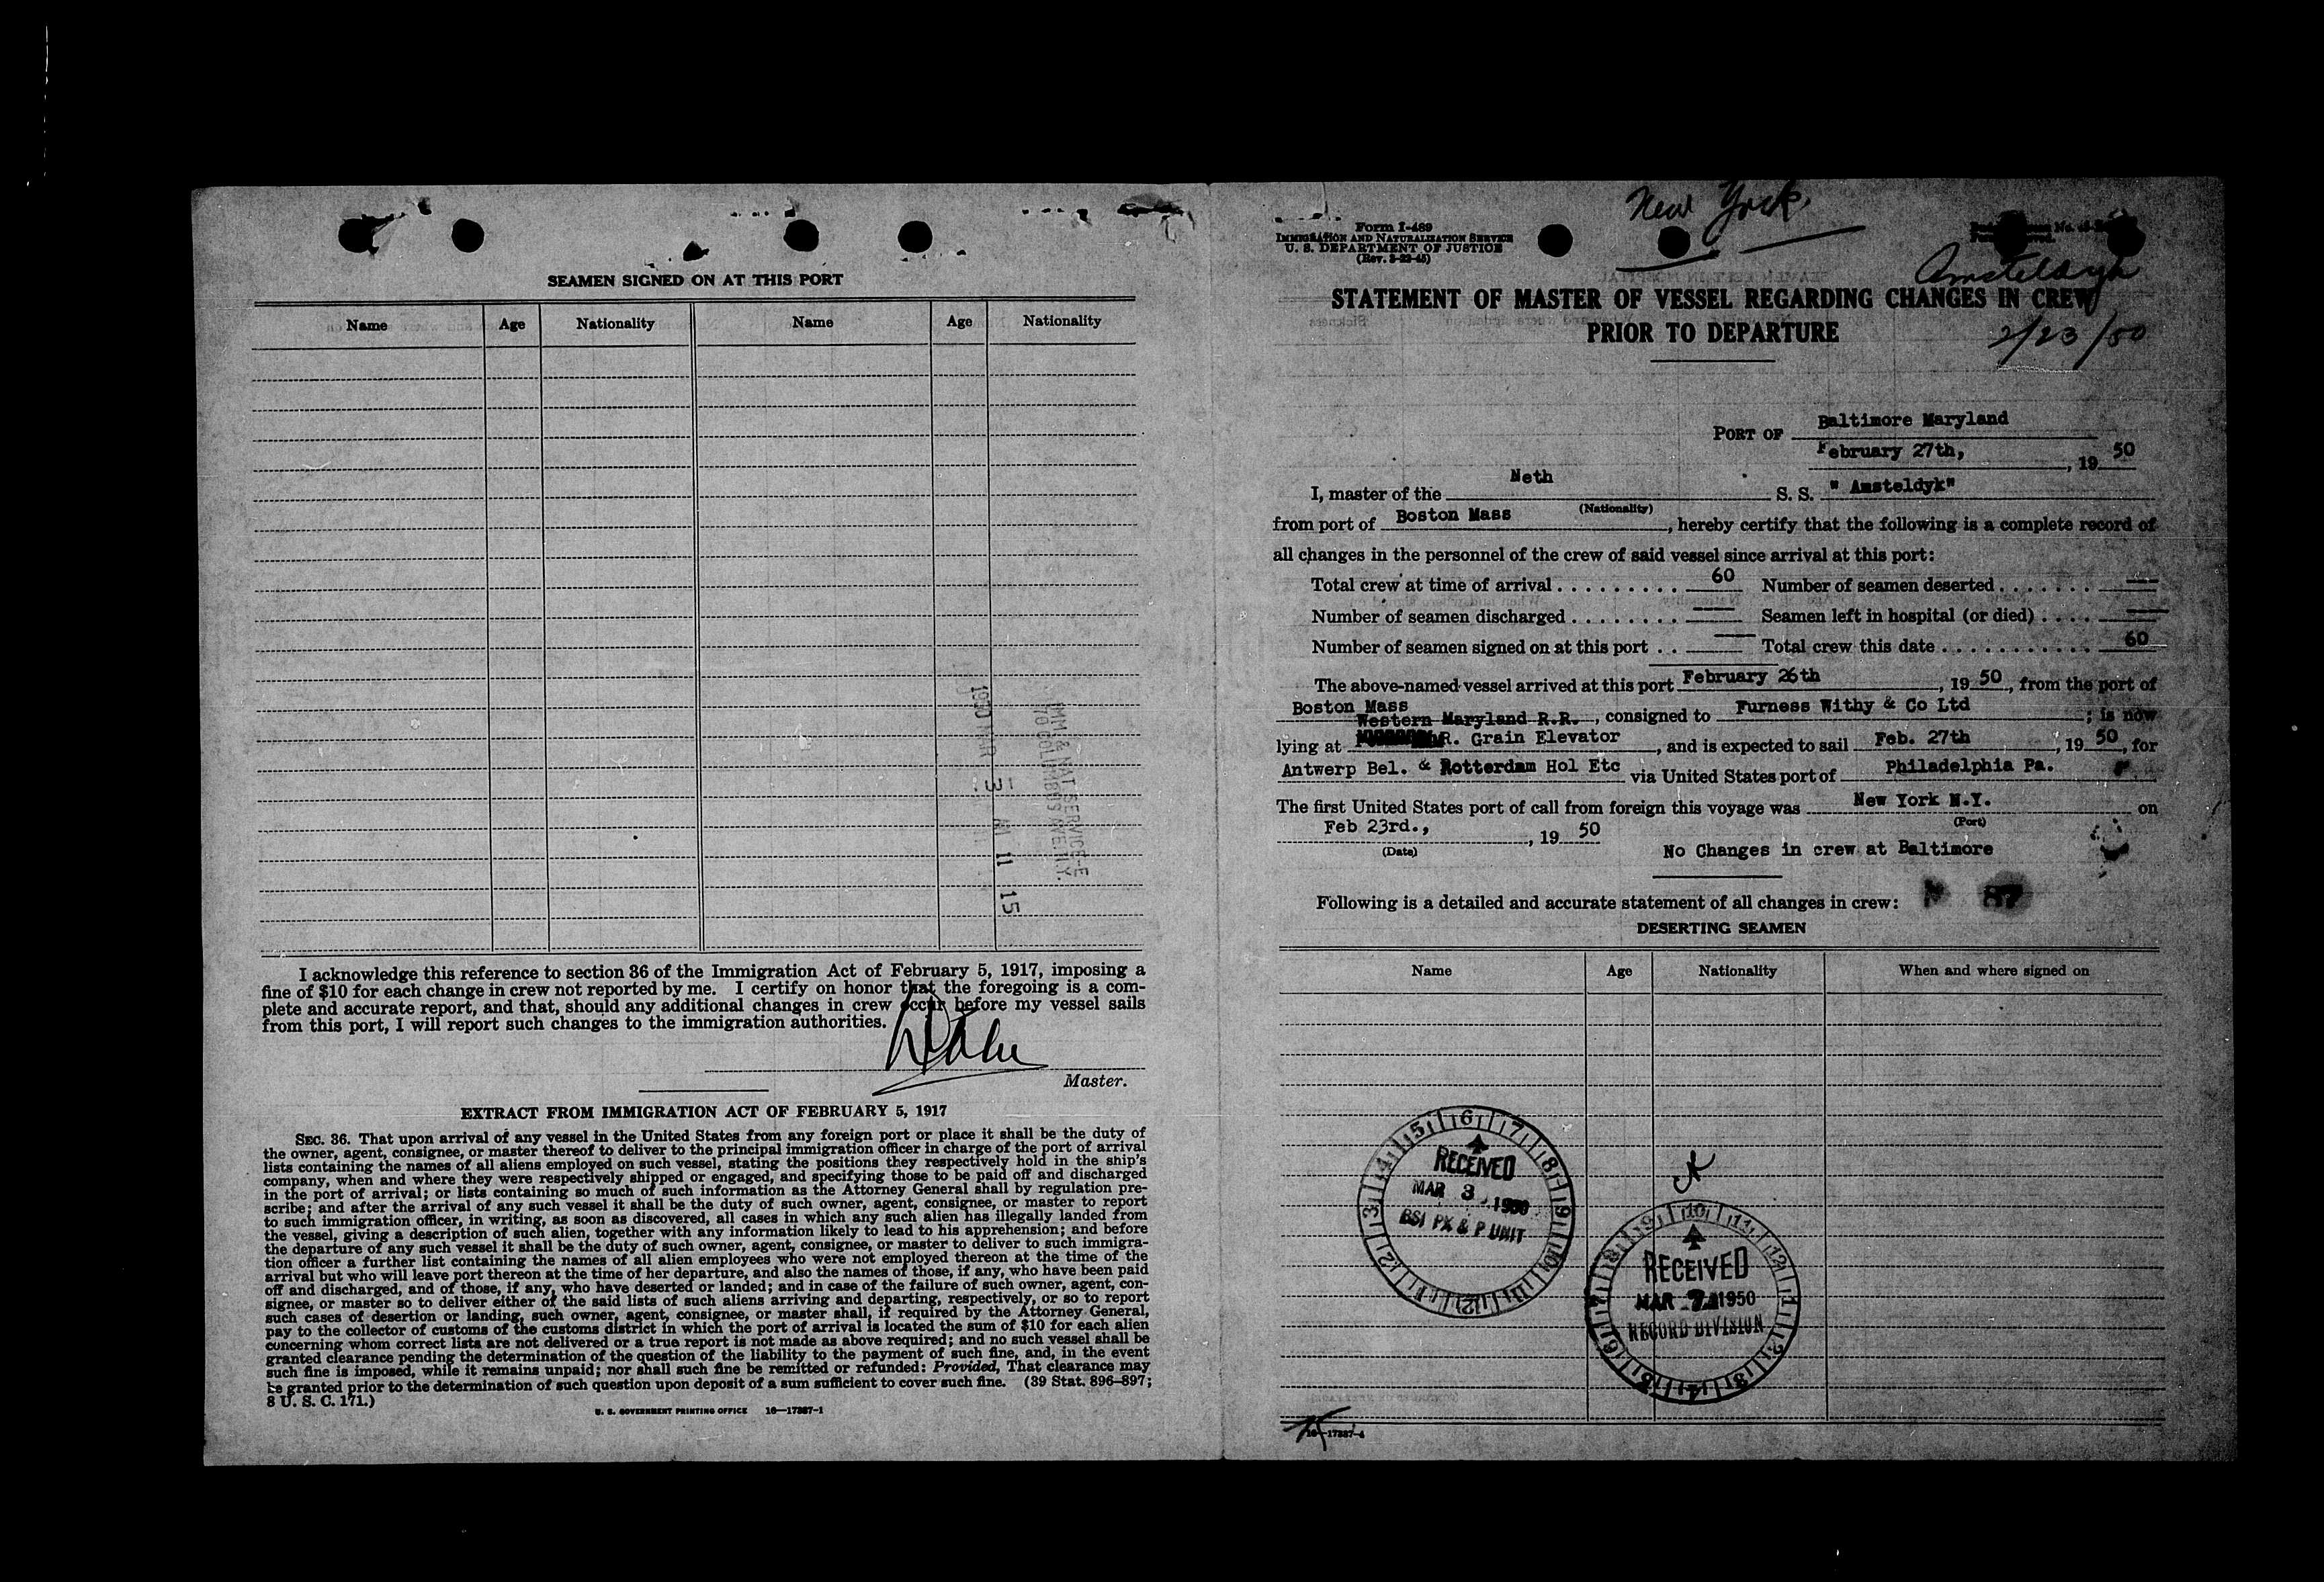 SEAMEN SIGNED ON AT THIS PORT
Name Age Nationality Name Age Nationality
1950 MAR 3 AM 11 15
IMM & NAT SERVICE
70 COLUMBUS AVE. N.Y.
I acknowledge this reference to section 36 of the Immigration Act of February 5, 1917, imposing a
fine of $10 for each change in crew not reported by me. I certify on honor that the foregoing is a com-
plete and accurate report, and that, should any additional changes in crew occur before my vessel sails
from this port, I will report such changes to the immigration authorities.
Master.
EXTRACT FROM IMMIGRATION ACT OF FEBRUARY 5, 1917
SEC. 36. That upon arrival of any vessel in the United States from any foreign port or place it shall be the duty of
the owner, agent, consignee, or master thereof to deliver to the principal immigration officer in charge of the port of arrival
lists containing the names of all aliens employed on such vessel, stating the positions they respectively hold in the ship's
company, when and where they were respectively shipped or engaged, and specifying those to be paid off and discharged
in the port of arrival; or lists containing so much of such information as the Attorney General shall by regulation pre-
scribe; and after the arrival of any such vessel it shall be the duty of such owner, agent, consignee, or master to report
to such immigration officer, in writing, as soon as discovered, all cases in which any such alien has illegally landed from
the vessel, giving a description of such alien, together with any information likely to lead to his apprehension; and before
the departure of any such vessel it shall be the duty of such owner, agent, consignee, or master to deliver to such immigra-
tion officer a further list containing the names of all alien employees who were not employed thereon at the time of the
arrival but who will leave port thereon at the time of her departure, and also the names of those, if any, who have been paid
off and discharged, and of those, if any, who have deserted or landed; and in case of the failure of such owner, agent, con-
signee, or master so to deliver either of the said lists of such aliens arriving and departing, respectively, or so to report
such cases of desertion or landing, such owner, agent, consignee, or master shall, if required by the Attorney General,
pay to the collector of customs of the customs district in which the port of arrival is located the sum of $10 for each alien
concerning whom correct lists are not delivered or a true report is not made as above required; and no such vessel shall be
granted clearance pending the determination of the question of the liability to the payment of such fine, and, in the event
such fine is imposed, while it remains unpaid; nor shall such fine be remitted or refunded: Provided, That clearance may
be granted prior to the determination of such question upon deposit of a sum sufficient to cover such fine. (39 Stat. 896–897;
8 U. S. C. 171.)
U. S. GOVERNMENT PRINTING OFFICE 16—17887-1
New York
Form I-489
IMMIGRATION AND NATURALIZATION SERVICE
U. S. DEPARTMENT OF JUSTICE
(Rev. 3-22-45)
Amsteldyk
STATEMENT OF MASTER OF VESSEL REGARDING CHANGES IN CREW
PRIOR TO DEPARTURE
2/23/50
PORT OF Baltimore Maryland
February 27th, , 19 50
I, master of the Neth S. S. " Amsteldyk"
(Nationality)
from port of Boston Mass , hereby certify that the following is a complete record of
all changes in the personnel of the crew of said vessel since arrival at this port:
Total crew at time of arrival . . . . . . . . . 60 Number of seamen deserted . . . . . . . —
Number of seamen discharged . . . . . . . . — Seamen left in hospital (or died) . . . . —
Number of seamen signed on at this port . . — Total crew this date . . . . . . . . . . . 60
The above-named vessel arrived at this port February 26th , 19 50 , from the port of
Boston Mass
Western Maryland R.R. , consigned to Furness Withy & Co Ltd ; is now
lying at R. Grain Elevator , and is expected to sail Feb. 27th , 19 50 , for
Antwerp Bel. & Rotterdam Hol Etc via United States port of Philadelphia Pa.
The first United States port of call from foreign this voyage was New York N.Y. on
(Port)
Feb 23rd., , 19 50
(Date)
No Changes in crew at Baltimore
Following is a detailed and accurate statement of all changes in crew: 87
DESERTING SEAMEN
Name Age Nationality When and where signed on
RECEIVED
MAR 3 1950
BSI PX & P UNIT
RECEIVED
MAR 7 1950
RECORD DIVISION